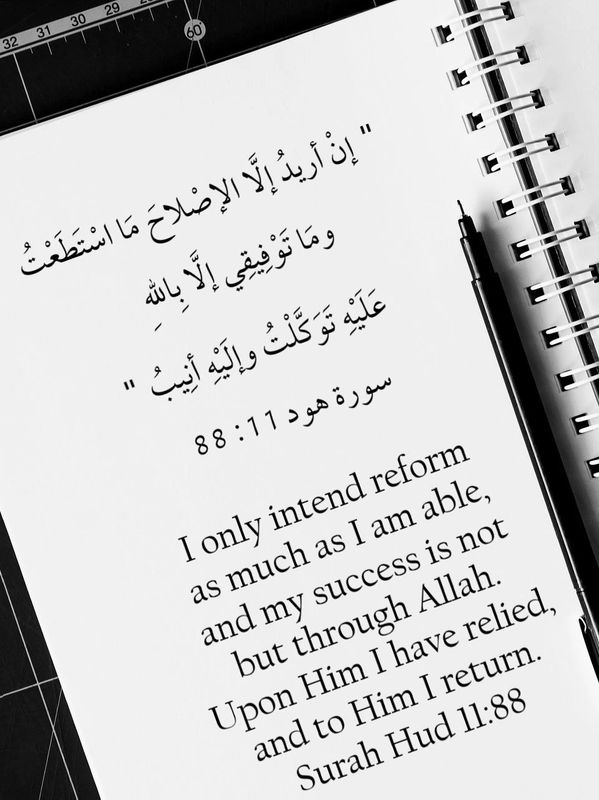 32 31 30 29
60
" إنْ أريدُ إلَّا الإصْلاحَ مَا اسْتَطَعْتُ
ومَا تَوْفِيقِي إلَّا بِاللهِ
عَلَيْهِ تَوَكَّلْتُ وإلَيْهِ أنِيبُ "
سورة هود 11:88
I only intend reform
as much as I am able,
and my success is not
but through Allah.
Upon Him I have relied,
and to Him I return.
Surah Hud 11:88